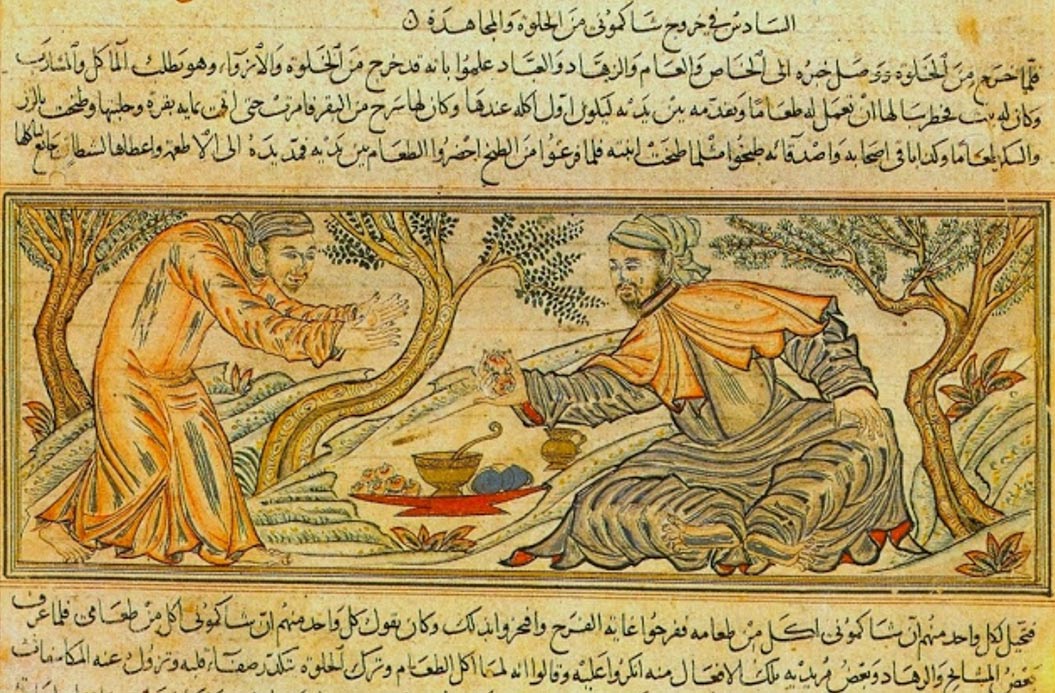 السادس في خروج شاكموني من الخلوة والمجاهدة
فلما خرج من الخلوة ووصل خبره الى الخاص والعام والزهاد والعباد علموا بانه قد خرج من الخلوة والانزواء وهو يطلب المآكل والمشارب
وكان له بنت فخطر ببالها ان تعمل له طعاما وتقدمه بين يديه ليكون اول اكله عندها وكان لها سرح من البقر فامرت حتى اتى بمايه بقرة وحلبتها وطبخت بالرز
والسكر طعاما وكذا باقي اصحابه واصدقائه طبخوا مثلما طبخت ابنته فلما فرغوا من الطبخ احضروا الطعام بين يديه فمد يده الى الاطعمة واعطاها للشيطان
فتخيل لكل واحد منهم ان شاكموني اكل من طعامه ففرحوا غاية الفرح وافتخروا بذلك وكان يقول كل واحد منهم ان شاكموني اكل من طعامي فلما عرف
بعض المشايخ والزهاد وبعض مريديه بتلك الافعال منه انكروا عليه وقالوا انه لما اكل الطعام وترك الخلوة تكدر صفاء قلبه وتزول عنه المكاشفات